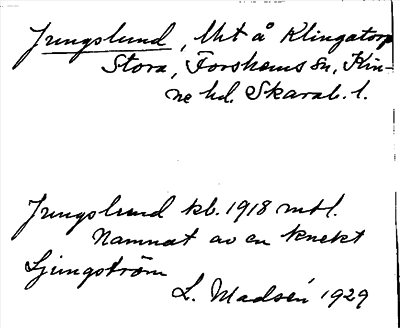 Jungslund, lht å Klingatorp
Stora, Forshems sn, Kin-
ne hd. Skarab. l.
Jungslund kb. 1918 mtl.
Namnat av en knekt
Ljungström
L. Madsén 1929